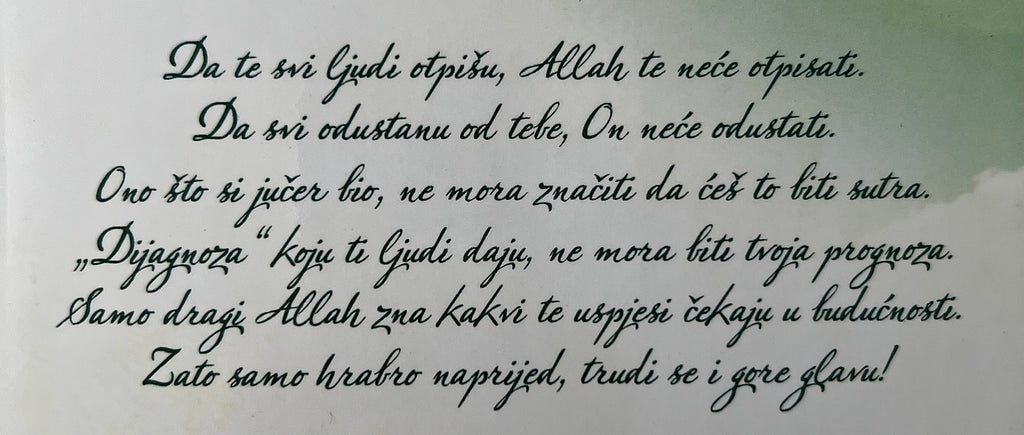 Da te svi ljudi otpišu, Allah te neće otpisati.
Da svi odustanu od tebe, On neće odustati.
Ono što si jučer bio, ne mora značiti da ćeš to biti sutra.
„Dijagnoza“ koju ti ljudi daju, ne mora biti tvoja prognoza.
Samo dragi Allah zna kakvi te uspjesi čekaju u budućnosti.
Zato samo hrabro naprijed, trudi se i gore glavu!